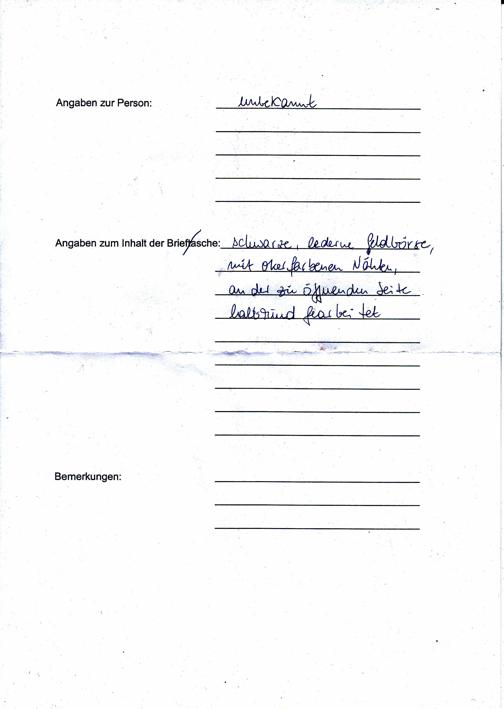 Angaben zur Person: unbekannt
Angaben zum Inhalt der Brieftasche: schwarze, lederne Geldbörse,
mit ockerfarbenen Nähten,
an der zu öffnenden Seite
halbrund gearbeitet
Bemerkungen: